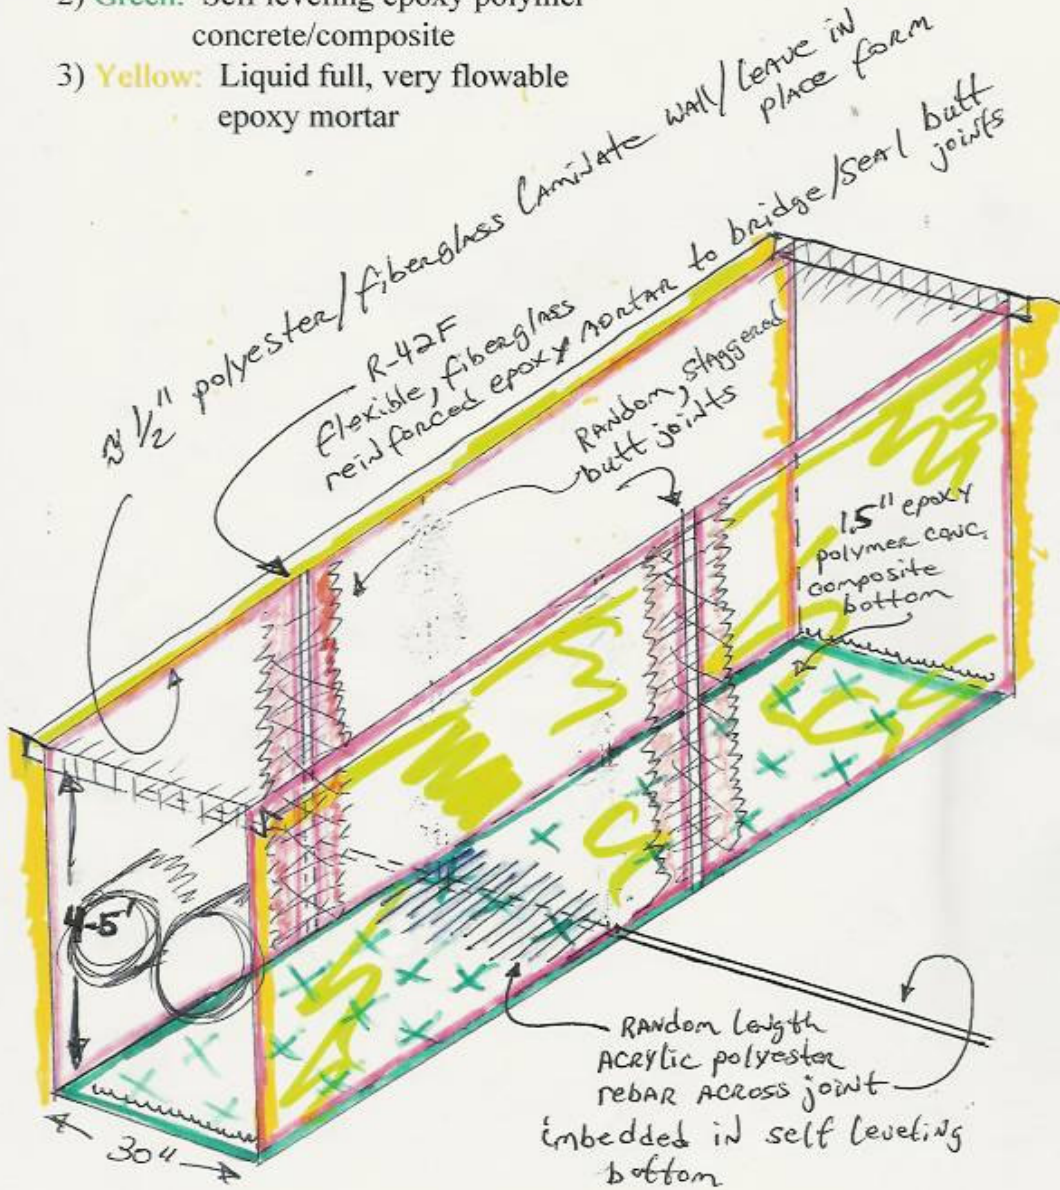 2) Green: Self-leveling epoxy polymer
concrete/composite
3) Yellow: Liquid full, very flowable
epoxy mortar
≈ 1/2" polyester/fiberglass laminate wall/leave in
place form
R-42F
flexible, fiberglass
reinforced epoxy mortar to bridge/seal butt
joints
Random, staggered
butt joints
1.5" epoxy
polymer conc.
composite
bottom
4-5'
30"
Random length
Acrylic polyester
rebar across joint
imbedded in self leveling
bottom